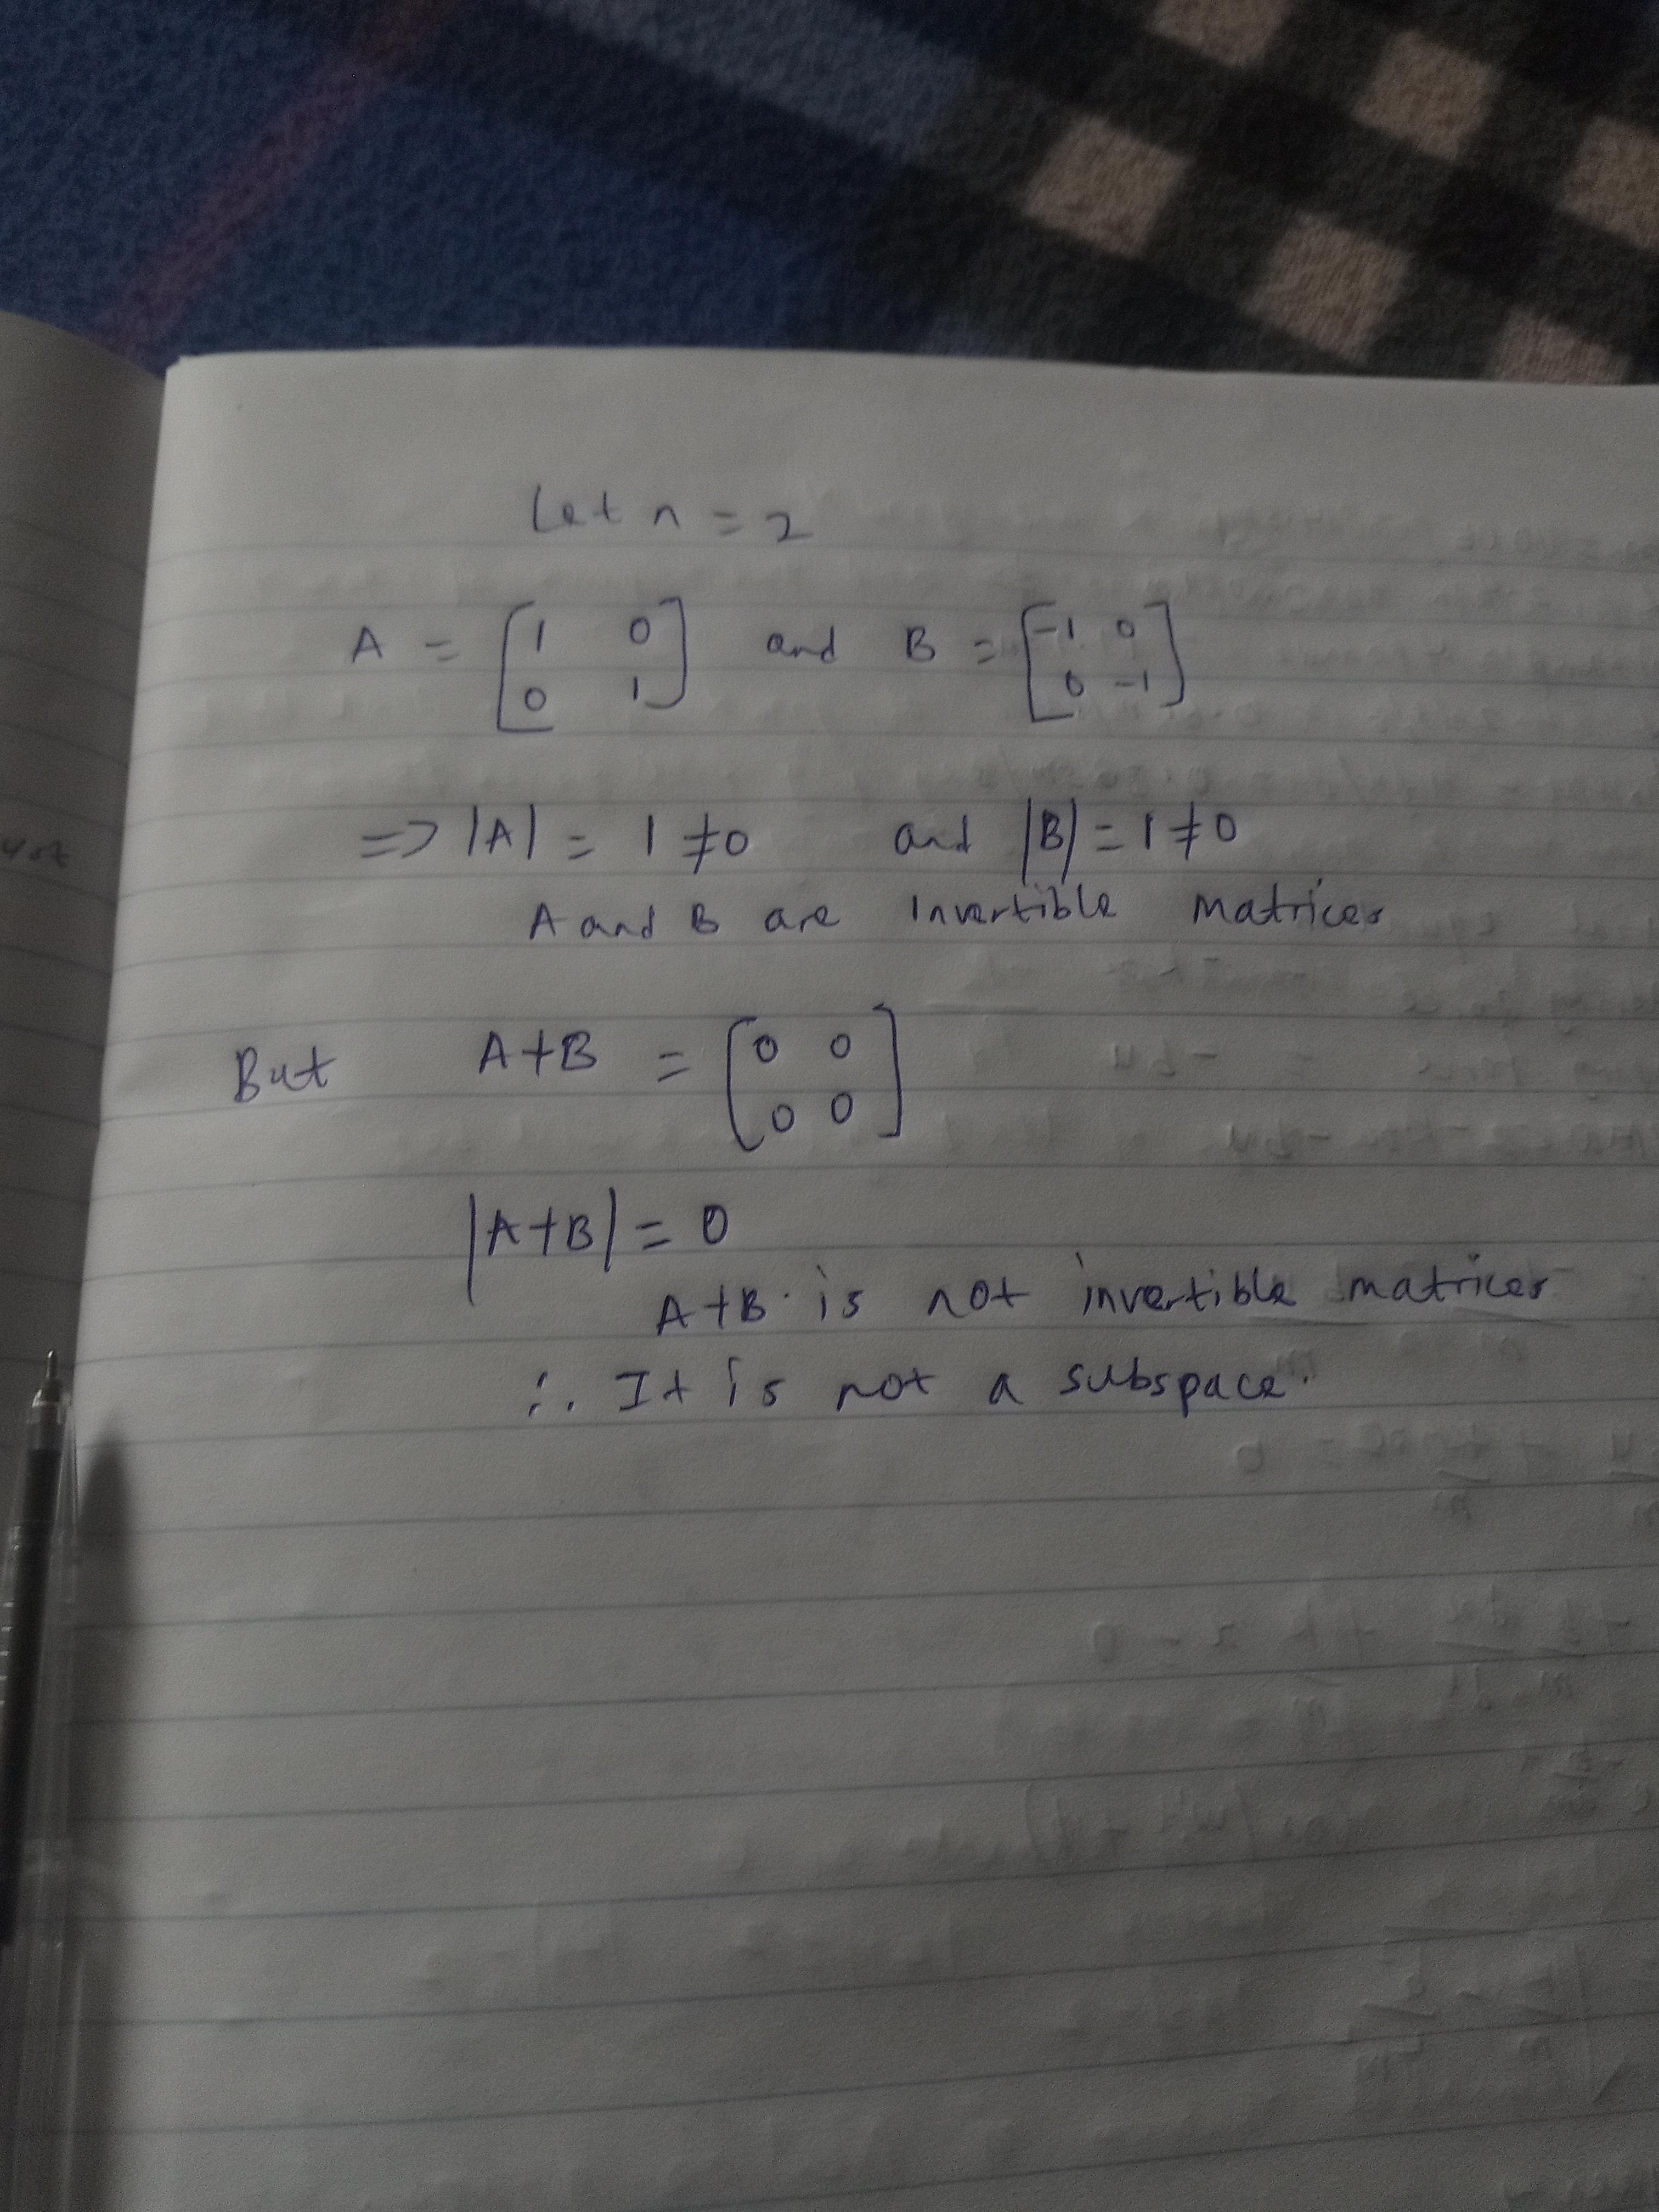 Let n = 2
A = [1 0 and B = [-1 0
0 1] 0 -1]
=> |A| = 1 ≠ 0 and |B| = 1 ≠ 0
A and B are Invertible Matrices
But A+B = [0 0
0 0]
|A+B| = 0
A+B is not invertible matrices
∴ It is not a subspace.